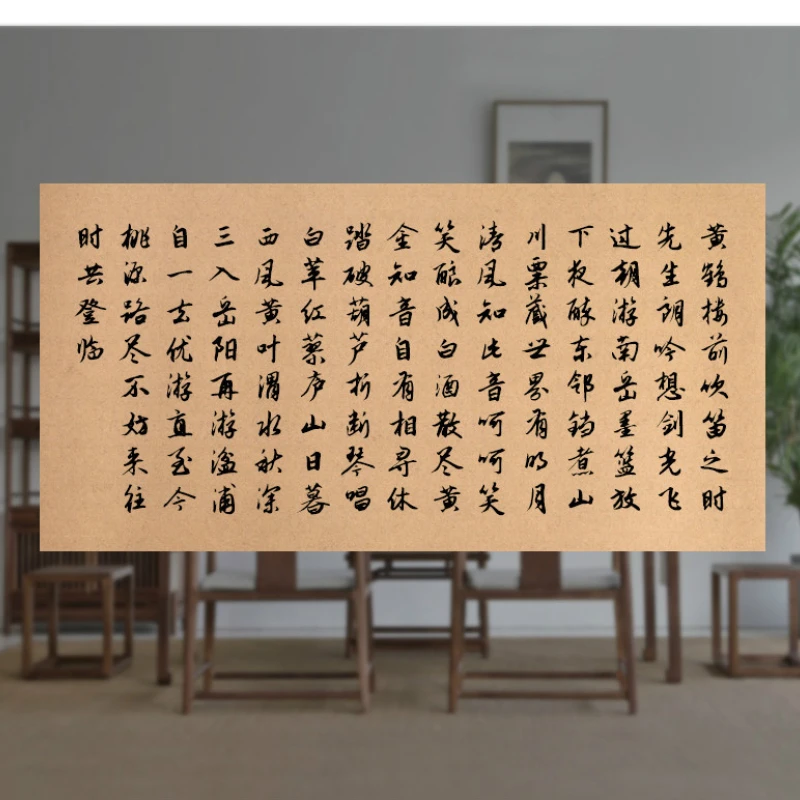 黄鹤楼前吹笛之时
先生朗吟想剑光飞
过朝游南岳墨篮放
下夜醉东邻铛煮山
川粟藏世界有明月
清风知此音呵呵笑
笑酿成白酒散尽黄
金知音自有相寻休
踏破葫芦折断琴唱
白苹红蓼庐山日暮
西风黄叶渭水秋深
三入岳阳再游湓浦
自一去优游直至今
桃源路尽不妨来往
时共登临